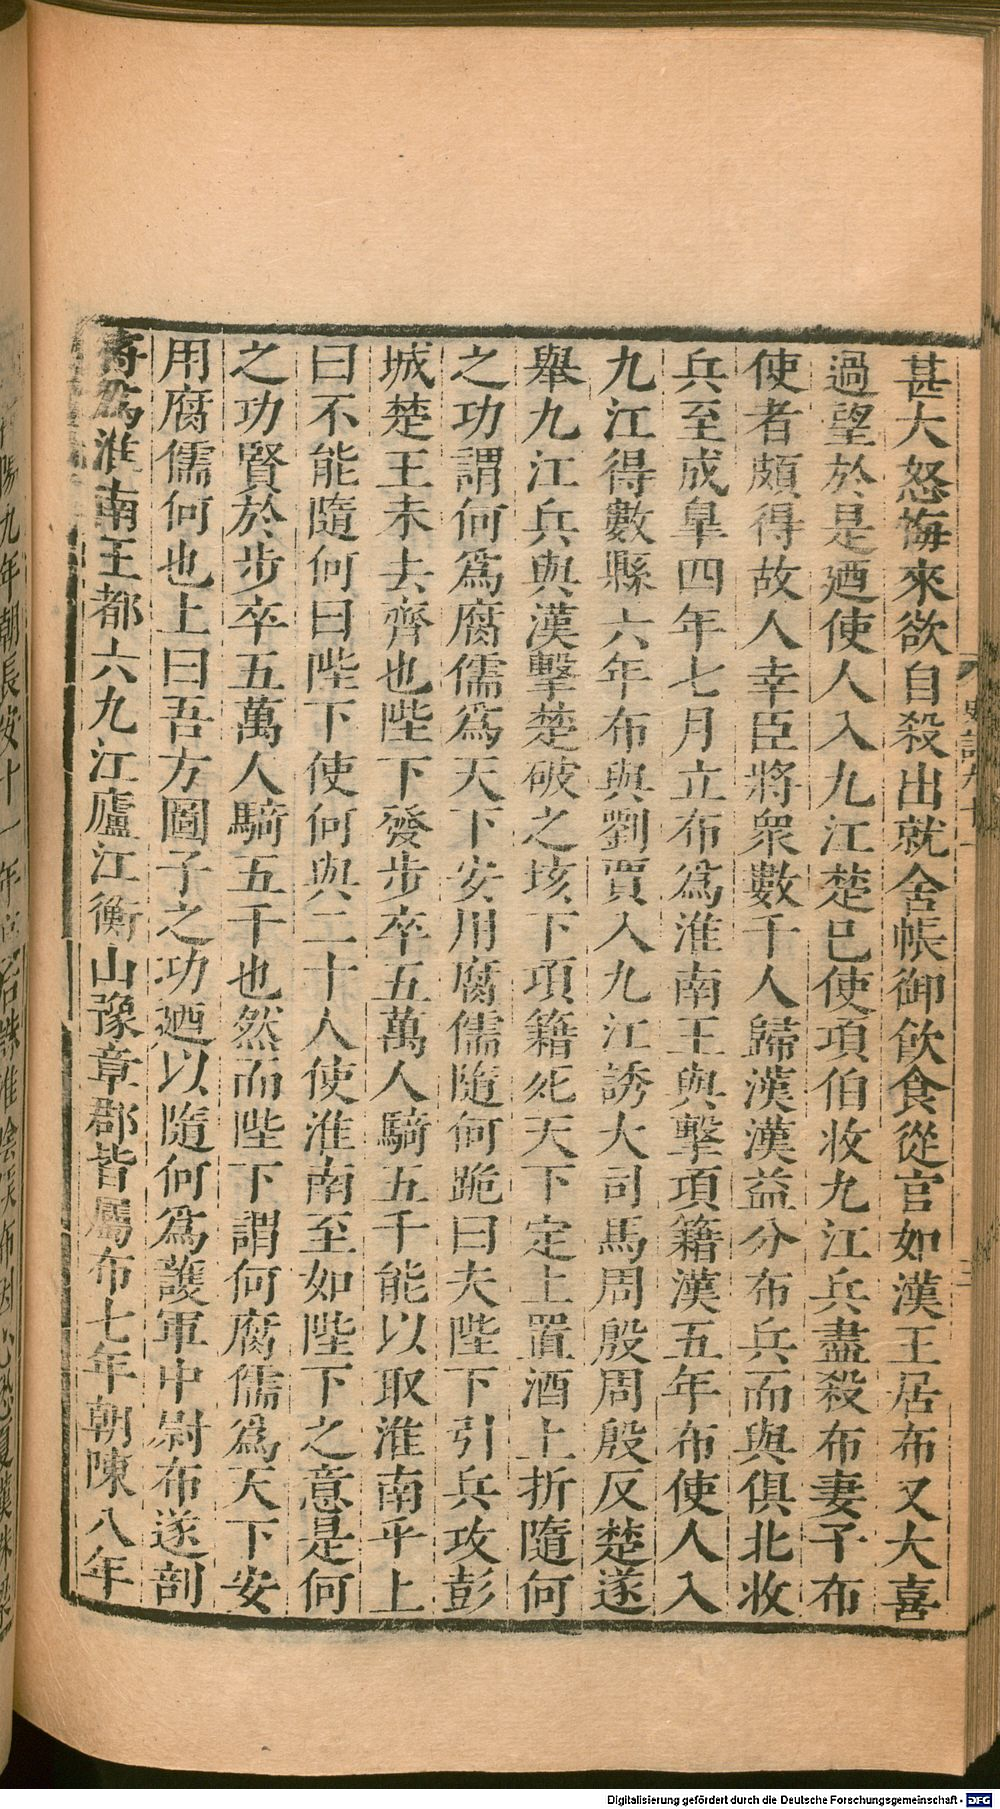 甚大怒悔來欲自殺出就舍帳御飲食從官如漢王居布又大喜
過望於是廼使人入九江楚已使項伯收九江兵盡殺布妻子布
使者頗得故人幸臣將衆數千人歸漢漢益分布兵而與俱北收
兵至成皐四年七月立布爲淮南王與擊項籍漢五年布使人入
九江得數縣六年布與劉賈入九江誘大司馬周殷周殷反楚遂
舉九江兵與漢擊楚破之垓下項籍死天下定上置酒上折隨何
之功謂何爲腐儒爲天下安用腐儒隨何跪曰夫陛下引兵攻彭
城楚王未去齊也陛下發步卒五萬人騎五千能以取淮南乎上
曰不能隨何曰陛下使何與二十人使淮南至如陛下之意是何
之功賢於步卒五萬人騎五千也然而陛下謂何腐儒爲天下安
用腐儒何也上曰吾方圖子之功廼以隨何爲護軍中尉布遂剖
符爲淮南王都六九江廬江衡山豫章郡皆屬布七年朝陳八年
陽九年朝長安十一年高后誅淮陰侯布因心恐夏漢誅梁
Digitalisierung gefördert durch die Deutsche Forschungsgemeinschaft - DFG